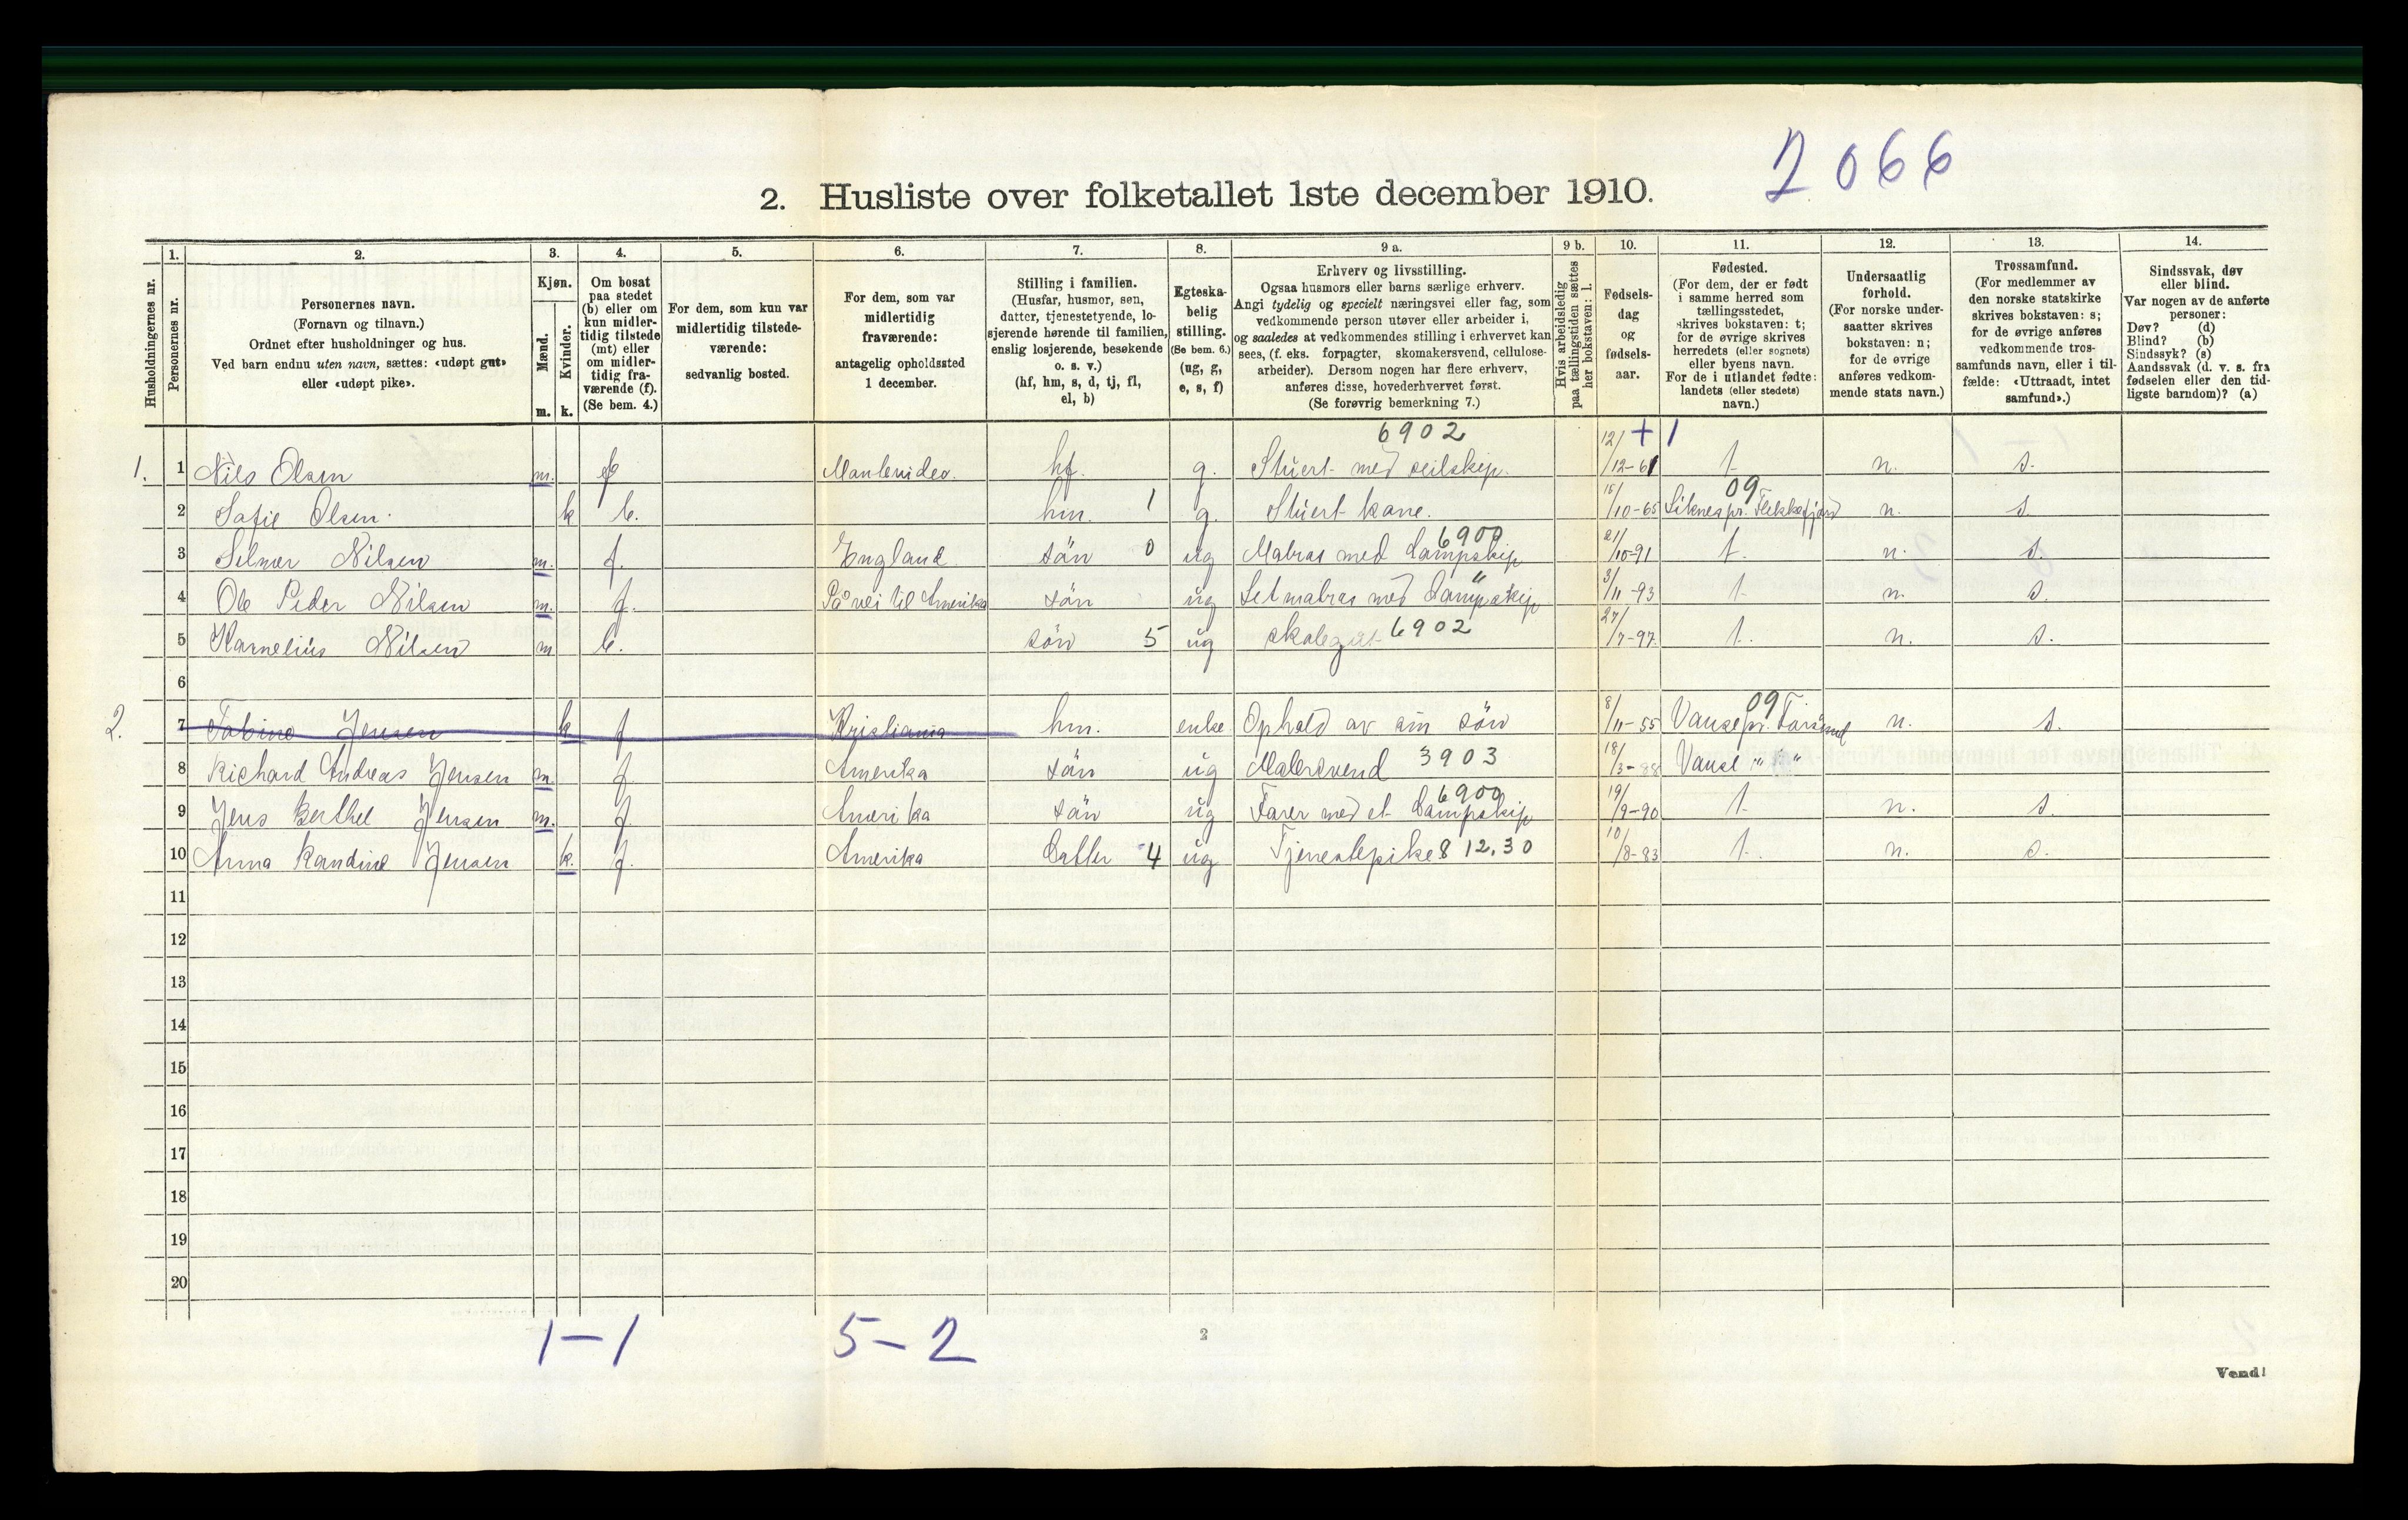 2066
2. Husliste over folketallet 1ste december 1910.
Husholdningernes nr.
1.
Personernes nr.
2.
Personernes navn.
(Fornavn og tilnavn.)
Ordnet efter husholdninger og hus.
Ved barn endnu uten navn, sættes: «udøpt gut»
eller «udøpt pike».
3.
Kjøn.
Mænd.
Kvinder.
m. k.
4.
Om bosat
paa stedet
(b) eller om
kun midler-
tidig tilstede
(mt) eller
om midler-
tidig fra-
værende (f).
(Se bem. 4.)
5.
For dem, som kun var
midlertidig tilstede-
værende:
sedvanlig bosted.
6.
For dem, som var
midlertidig
fraværende:
antagelig opholdssted
1 december.
7.
Stilling i familien.
(Husfar, husmor, søn,
datter, tjenestetyende, lo-
sjerende hørende til familien,
enslig losjerende, besøkende
o. s. v.)
(hf, hm, s, d, tj, fl,
el, b)
8.
Egteska-
belig
stilling.
(Se bem. 6.)
(ug, g,
e, s, f)
9 a.
Erhverv og livsstilling.
Ogsaa husmors eller barns særlige erhverv.
Angi tydelig og specielt næringsvei eller fag, som
vedkommende person utøver eller arbeider i,
og saaledes at vedkommendes stilling i erhvervet kan
sees, (f. eks. forpagter, skomakersvend, cellulose-
arbeider). Dersom nogen har flere erhverv,
anføres disse, hovederhvervet først.
(Se forøvrig bemerkning 7.)
9 b.
Hvis arbeidsledig
paa tællingstiden sættes
her bokstaven: l.
10.
Fødsels-
dag
og
fødsels-
aar.
11.
Fødested.
(For dem, der er født
i samme herred som
tællingsstedet,
skrives bokstaven: t;
for de øvrige skrives
herredets (eller sognets)
eller byens navn.
For de i utlandet fødte:
landets (eller stedets)
navn.)
12.
Undersaatlig
forhold.
(For norske under-
saatter skrives
bokstaven: n;
for de øvrige
anføres vedkom-
mende stats navn.)
13.
Trossamfund.
(For medlemmer av
den norske statskirke
skrives bokstaven: s;
for de øvrige anføres
vedkommende tros-
samfunds navn, eller i til-
fælde: «Uttraadt, intet
samfund».)
14.
Sindssvak, døv
eller blind.
Var nogen av de anførte
personer:
Døv? (d)
Blind? (b)
Sindssyk? (s)
Aandssvak (d. v. s. fra
fødselen eller den tid-
ligste barndom)? (a)
6902 12/ + 1
1. 1 Nils Olsen m. f hf. g. Stuert med seilskip. /12-61 t n. s.
09
2 Sofie Olsen. k b. hm. 1 g. Stuert kone. 15/10-65 n. s.
6900
3 Selmer Nilsen m. f. England sön 0 ug Matros med Dampskip 21/10-91 t. n. s.
4 Ole Peder Nilsen m. f. På vei til Amerika sön ug Letmatros med Dampskip " 3/11-93 t n. s.
5 Kornelius Nilsen m b. sön 5 ug skolegut 6902 27/7-97. t. n. s.
6
09
2. 7 Tobine Jensen k f Kristiania hm. enke Ophold av sin sön 8/11-55 Vanse pr. Farsund n. s.
8 Richard Andreas Jensen m. f. Amerika sön ug Malersvend 3903 18/3-88 Vanse " "
6900
9 Jens Berthel Jensen m. f. Amerika sön ug Farer med et Dampskip 19/9-90 t. n. s.
10 Anna Randine Jensen k. f. Amerika Datter 4 ug Tjenestepike 8 12.30 10/8-83 t. n. s.
11
12
13
14
15
16
17
18
19
20
1-1 5-2
2
Vend!